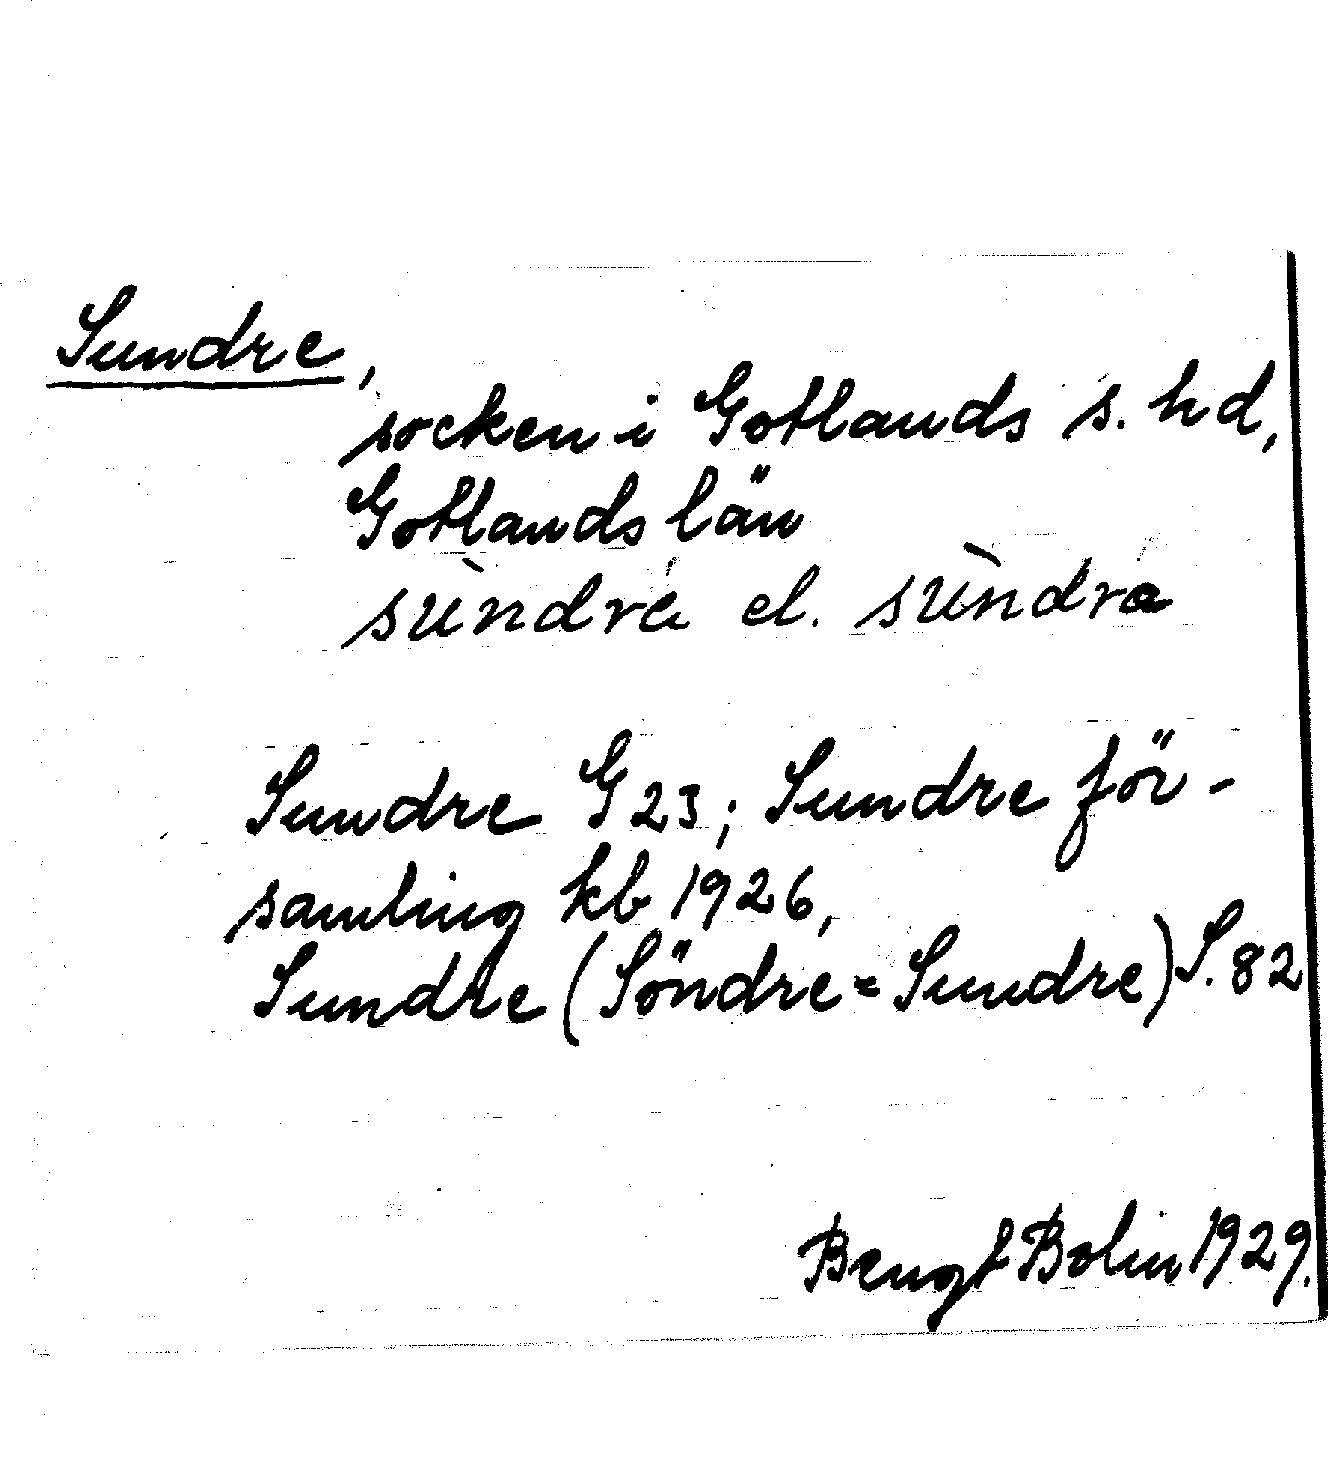 Sundre,
socken i Gotlands s. hd,
Gotlands län
sùndrá el. sùndrə
Sundre G 23; Sundre för-
samling kb 1926,
Sundre (Söndre = Sundre) S. 82
Bengt Bolin 1929.